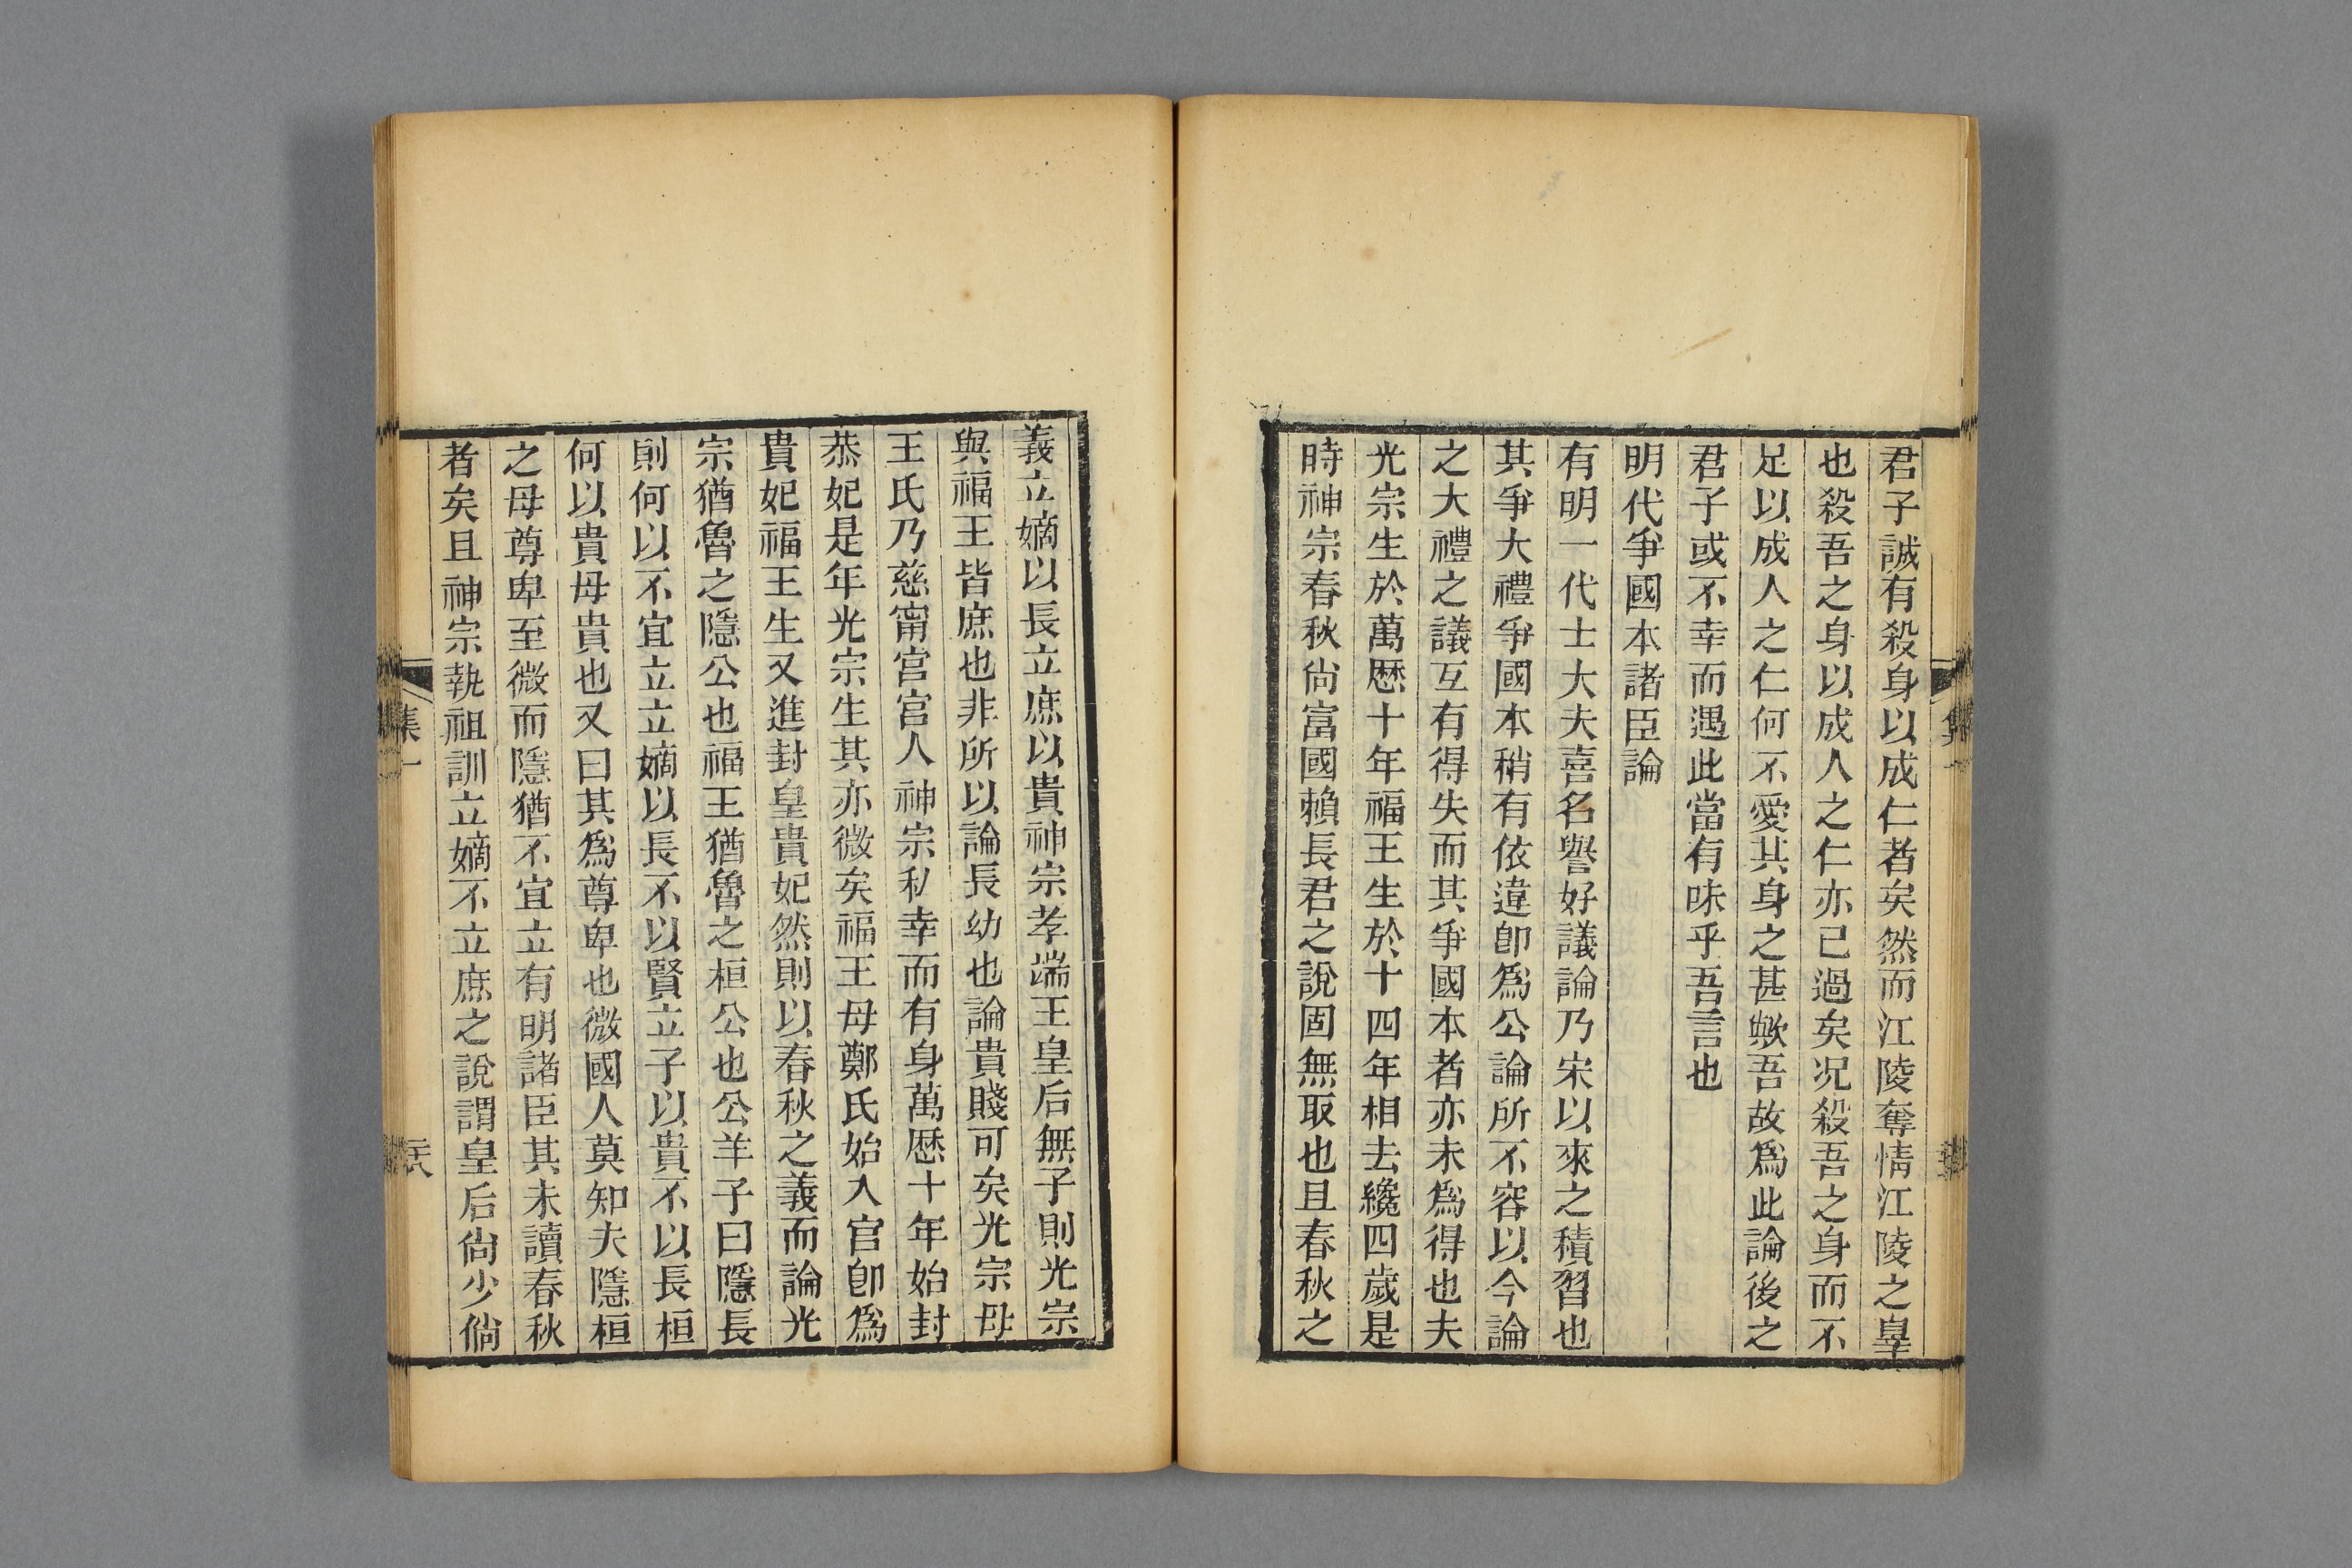 君子誠有殺身以成仁者矣然而江陵奪情江陵之辠
也殺吾之身以成人之仁亦已過矣况殺吾之身而不
足以成人之仁何不愛其身之甚歟吾故爲此論後之
君子或不幸而遇此當有味乎吾言也
明代爭國本諸臣論
有明一代士大夫喜名譽好議論乃宋以來之積習也
其爭大禮爭國本稍有依違卽爲公論所不容以今論
之大禮之議互有得失而其爭國本者亦未爲得也夫
光宗生於萬厯十年福王生於十四年相去纔四歲是
時神宗春秋尙富國賴長君之說固無取也且春秋之
義立嫡以長立庶以貴神宗孝端王皇后無子則光宗
與福王皆庶也非所以論長幼也論貴賤可矣光宗母
王氏乃慈甯宮宮人神宗私幸而有身萬厯十年始封
恭妃是年光宗生其亦微矣福王母鄭氏始入宮卽爲
貴妃福王生又進封皇貴妃然則以春秋之義而論光
宗猶魯之隱公也福王猶魯之桓公也公羊子曰隱長
則何以不宜立立嫡以長不以賢立子以貴不以長桓
何以貴母貴也又曰其爲尊卑也微國人莫知夫隱桓
之母尊卑至微而隱猶不宜立有明諸臣其未讀春秋
者矣且神宗執祖訓立嫡不立庶之說謂皇后尙少倘
集一